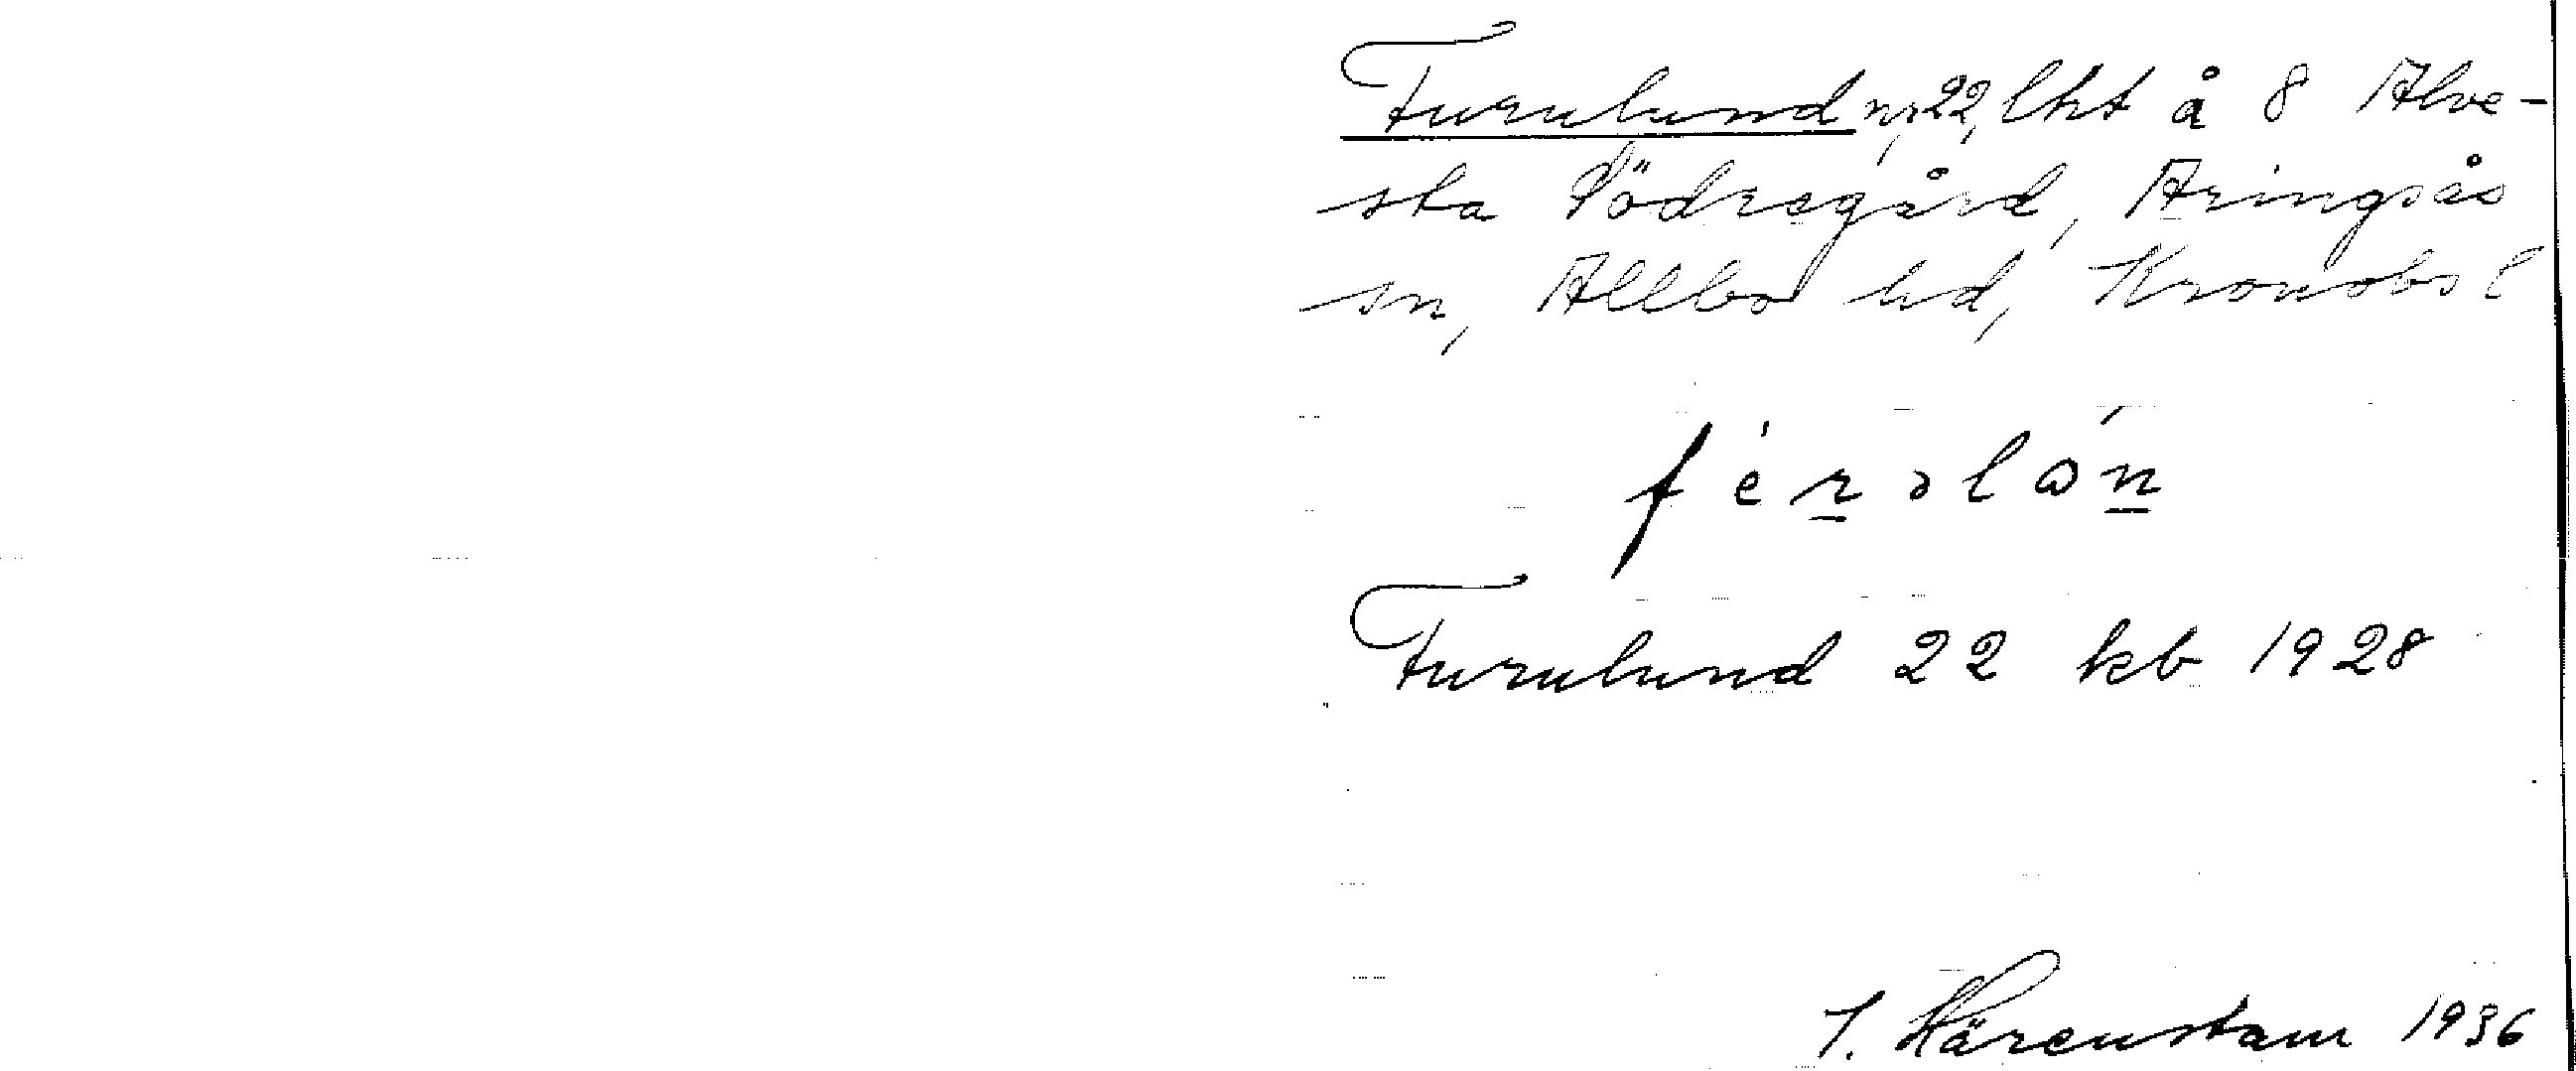 Furulund nr 22, lht å 8 Alve-
sta Södregård, Aringsås
sn, Allbo hd, Kronobs l
Furulund 22 kb 1928
J. Härenstam 1936